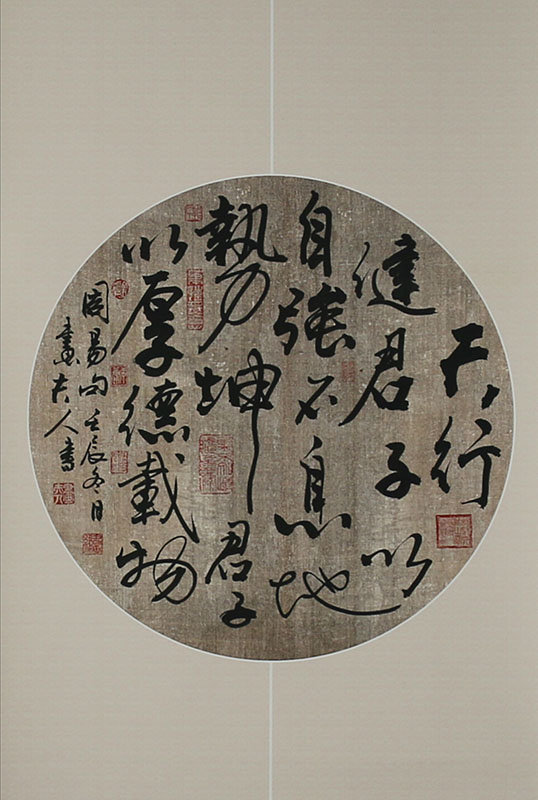 天行
健君子以
自強不息地
勢坤君子
以厚德載物
周易句壬辰冬日
人書